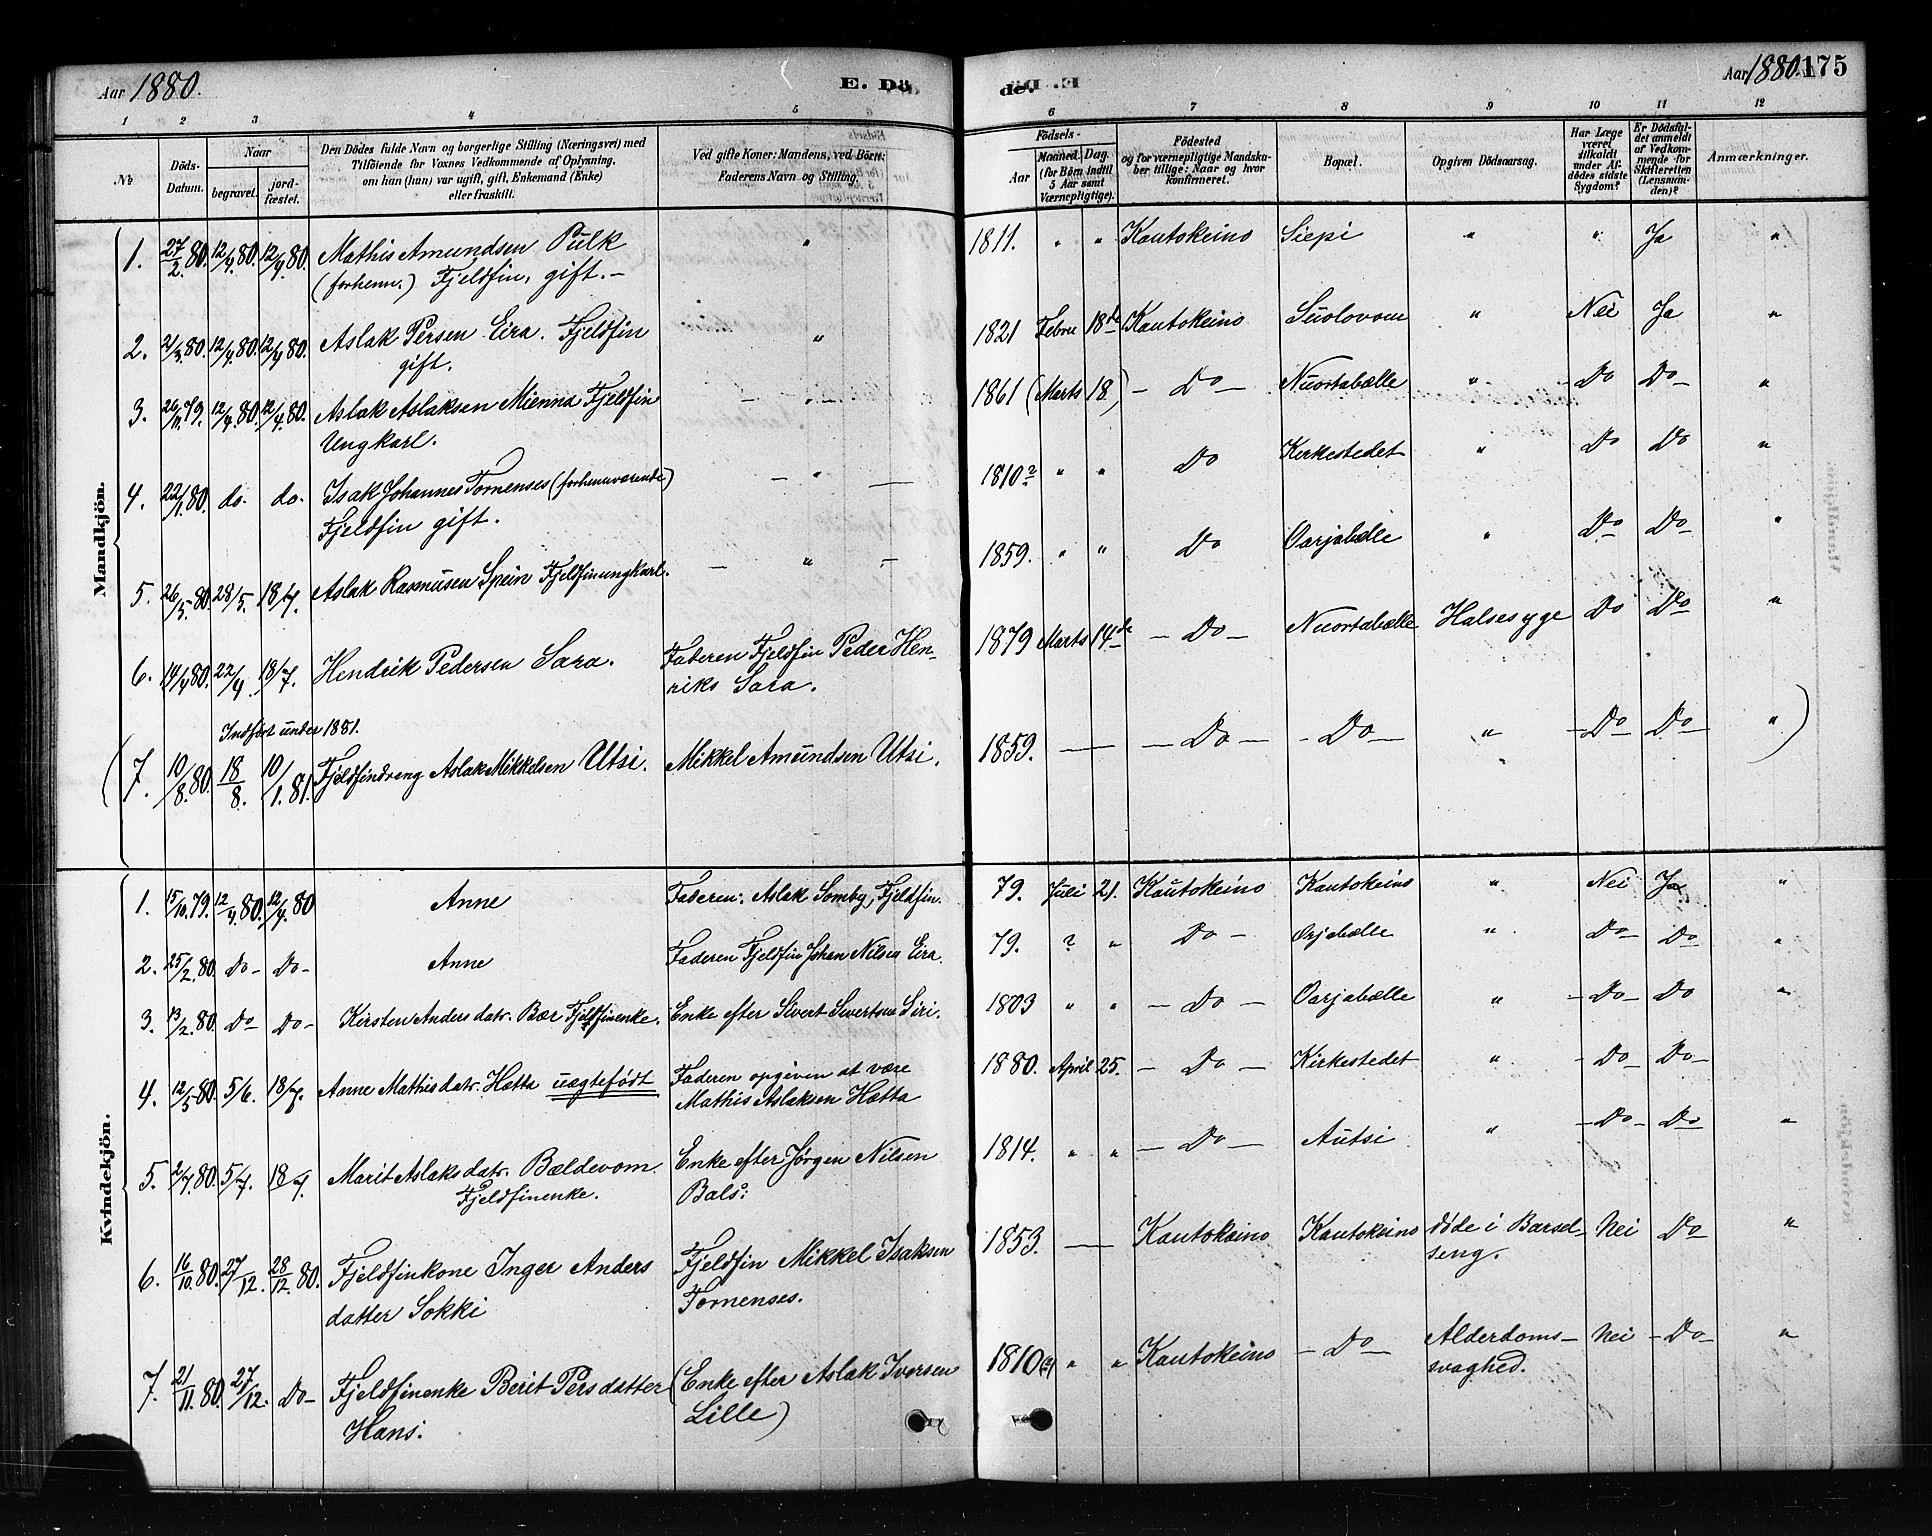 Aar 1880. E. Dö
de. Aar 1880. 175
1 2 3 4 5
6 7 8 9 10 11 12
№ Döds-Datum. Naar begravet. jord-fæstet. Den Dödes fulde Navn og borgerlige Stilling (Næringsvei) med Tilföiende for Voxnes Vedkommende af Oplysning, om han (hun) var ugift, gift, Enkemand (Enke) eller fraskilt. Ved gifte Koner: Mandens, ved Börn: Faderens Navn og Stilling.
Födsels- Aar Maaned. Dag. (for Börn indtil 5 Aar samt Værnepligtige). Födested og for værnepligtige Mandska-ber tillige: Naar og hvor konfirmeret. Bopæl. Opgiven Dödsaarsag. Har Læge været tilkaldt under Af-dödes sidste Sygdom? Er Dödsfal-det anmeldt af Vedkom-mende for Skifteretten (Lensman-den)? Anmærkninger.
Mandkjön.
1. 27/2. 80. 12/4. 80. 12/4. 80. Mathis Amundsen Pulk " 1811. " " Kautokeino Siepi " " Ja "
(forhenv.) Fjeldfin, gift. —
2. 21/3. 80. 12/4. 80. 12/4. 80. Aslak Persen Eira. Fjeldfin " 1821 Febru 18de Kautokeino Suolovom " Nei Ja "
gift.
3. 26/11. 79. 12/4. 80. 12/4. 80. Aslak Aslaksen Mienna Fjeldfin — " — 1861 (Marts 18) — Do — Nuortabælle " Do Do — "
Ungkarl.
4. 22/1. 80. do. do. Isak Johannes Tornenses (forhenværende) — " — 1810? " " Do Kirkestedet " Do Do "
Fjeldfin gift.
5. 26/5. 80. 28/5. 18/7. Aslak Rasmusen Spein Fjeldfinungkarl. — " — 1859. " " Do Oarjabelle " Do — Do — "
6. 14/4 80. 22/4. 18/7. Hendrik Pedersen Sara. Faderen Fjeldfin Peder Hen- 1879 Marts 14de — Do — Nuortabælle Halsesyge Do Do "
riks Sara.
Indført under 1881.
(7. 10/8. 80. 18/8. 10/1. 81. Fjeldfindreng Aslak Mikkelsen Utsi. Mikkel Amundsen Utsi. 1859. — — Do — — Do — " — Do — Do — ")
Kvindekjön.
1. 15/10. 79. 12/4. 80. 12/4. 80 Anne Faderen: Aslak Somby, Fjeldfin. 79. Juli 21. Kautokeino Kautokeino " Nei Ja "
2. 25/2. 80. Do — Do — Anne Faderen Fjeldfin Johan Nilsen Eira. 79. ? " Do — Orjabælle " Do — Do "
3. 13/2. 80. Do — Do — Kirsten Andersdatr. Bær Fjeldfinenke. Enke efter Sivert Sivertsen Siri. 1803 " " — Do — Oarjabælle " — Do — Do "
4. 12/5. 80. 5/6. 18/7. Anne Mathisdatr. Hætta uægtefödt Faderen opgiven at være 1880. April 25. — Do — Kirkestedet " — Do — Do —
Mathis Aslaksen Hætta
5. 2/4. 80. 5/7. 18/7. Marit Aslaksdatr. Bældevom Enke efter Jørgen Nilsen 1814. " " — Do — Autsi " — Do — Do — "
Fjeldfinenke. Bals:
6. 16/10. 80. 27/12. 28/12. 80. Fjeldfinkone Inger Anders Fjeldfin Mikkel Isaksen 1853. — Kautokeino Kautokeino døde i Barsel- Nei Do — "
datter Sokki Tornenses. seng.
7. 21/11. 80. 27/12. Do — Fjeldfinenke Berit Persdatter (Enke efter Aslak Iversen 1810 (?) " " Kautokeino — Do — Alderdoms- Nei — Do — "
Hans: Lille) svaghed.